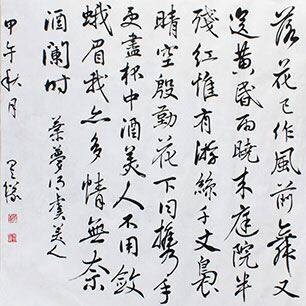 落花已作風前舞又
送黃昏雨曉來庭院半
殘紅惟有游絲千丈裊
晴空殷勤花下同攜手
更盡杯中酒美人不用斂
蛾眉我亦多情無奈
酒闌時 葉夢得虞美人
甲午秋月